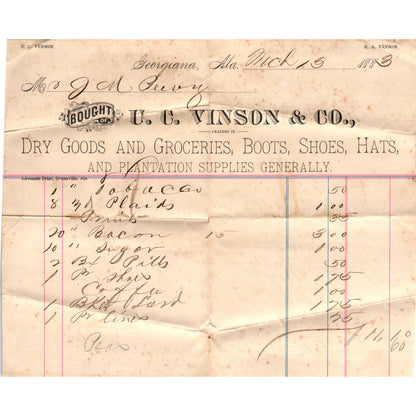 U. C. VINSON.
E. A. VINSON.
Georgiana, Ala. Mch 13 1883
Mr J M Peavy
BOUGHT OF U. C. VINSON & CO.,
DEALERS IN
DRY GOODS AND GROCERIES, BOOTS, SHOES, HATS,
AND PLANTATION SUPPLIES GENERALLY.
1 " Tobacco 50
8 yd Plaids 1 00
35
20 " Bacon 15 3 00
10 " Sugar 1 00
2 Bx Pills 50
1 Pr Shoes 1 75
Coffee 1 00
1 Bket Lard 1 75
1 Pr lines 75